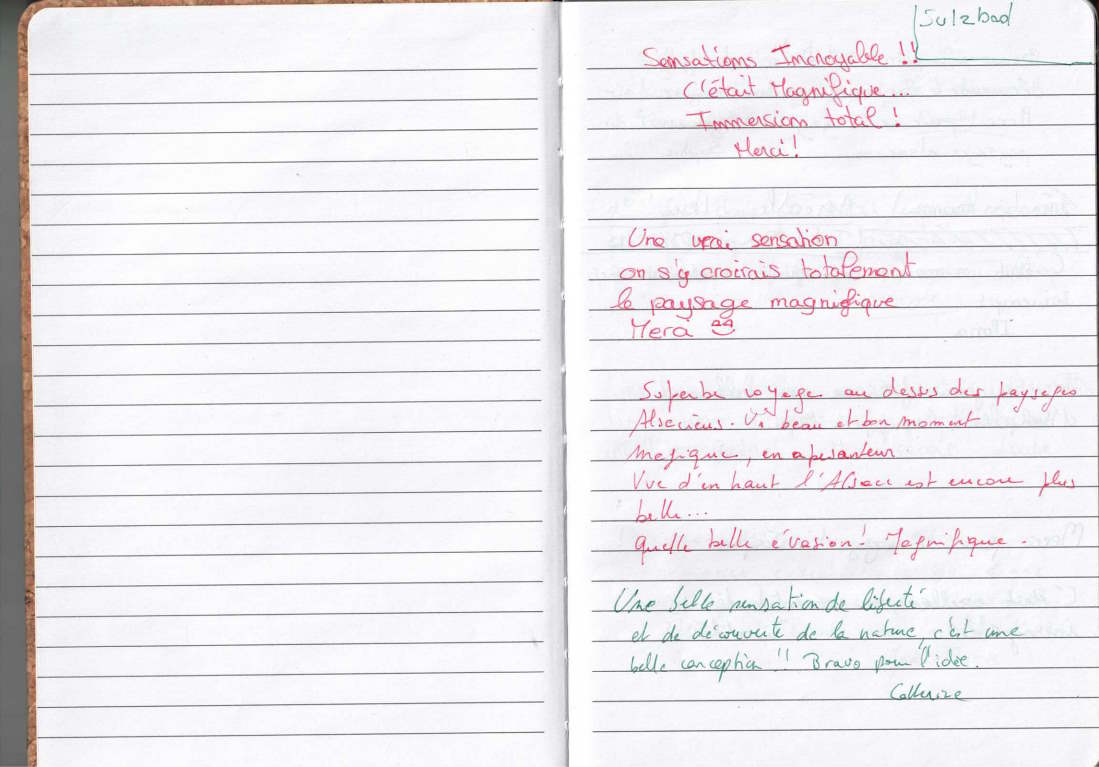 Sulzbad
Sensations Incroyable !!
C'était Magnifique...
Immersion total !
Merci !
Une vrai sensation
on s'y croirais totalement
le paysage magnifique
Merci
Superbe voyage au dessus des paysages
Alsaciens. Un beau et bon moment
magique, en apesanteur
Vue d'en haut l'Alsace est encore plus
belle...
Quelle belle évasion ! Magnifique.
Une belle sensation de liberté
et de découverte de la nature, c'est une
belle conception !! Bravo pour l'idée.
Catherine